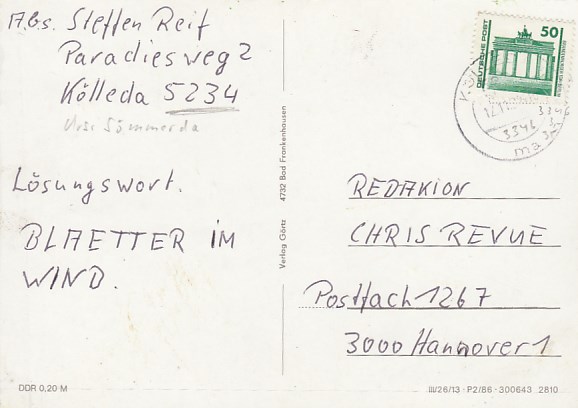 Abs. Steffen Reif
Paradiesweg 2
Kölleda 5234
Lösungswort.
BLAETTER IM
WIND.
DDR 0,20 M
Verlag Görtz 4732 Bad Frankenhausen
50
DEUTSCHE POST
REDAKION
CHRIS REVUE
Postfach 1267
3000 Hannover 1
III/26/13 · P2/86 · 300643 2810